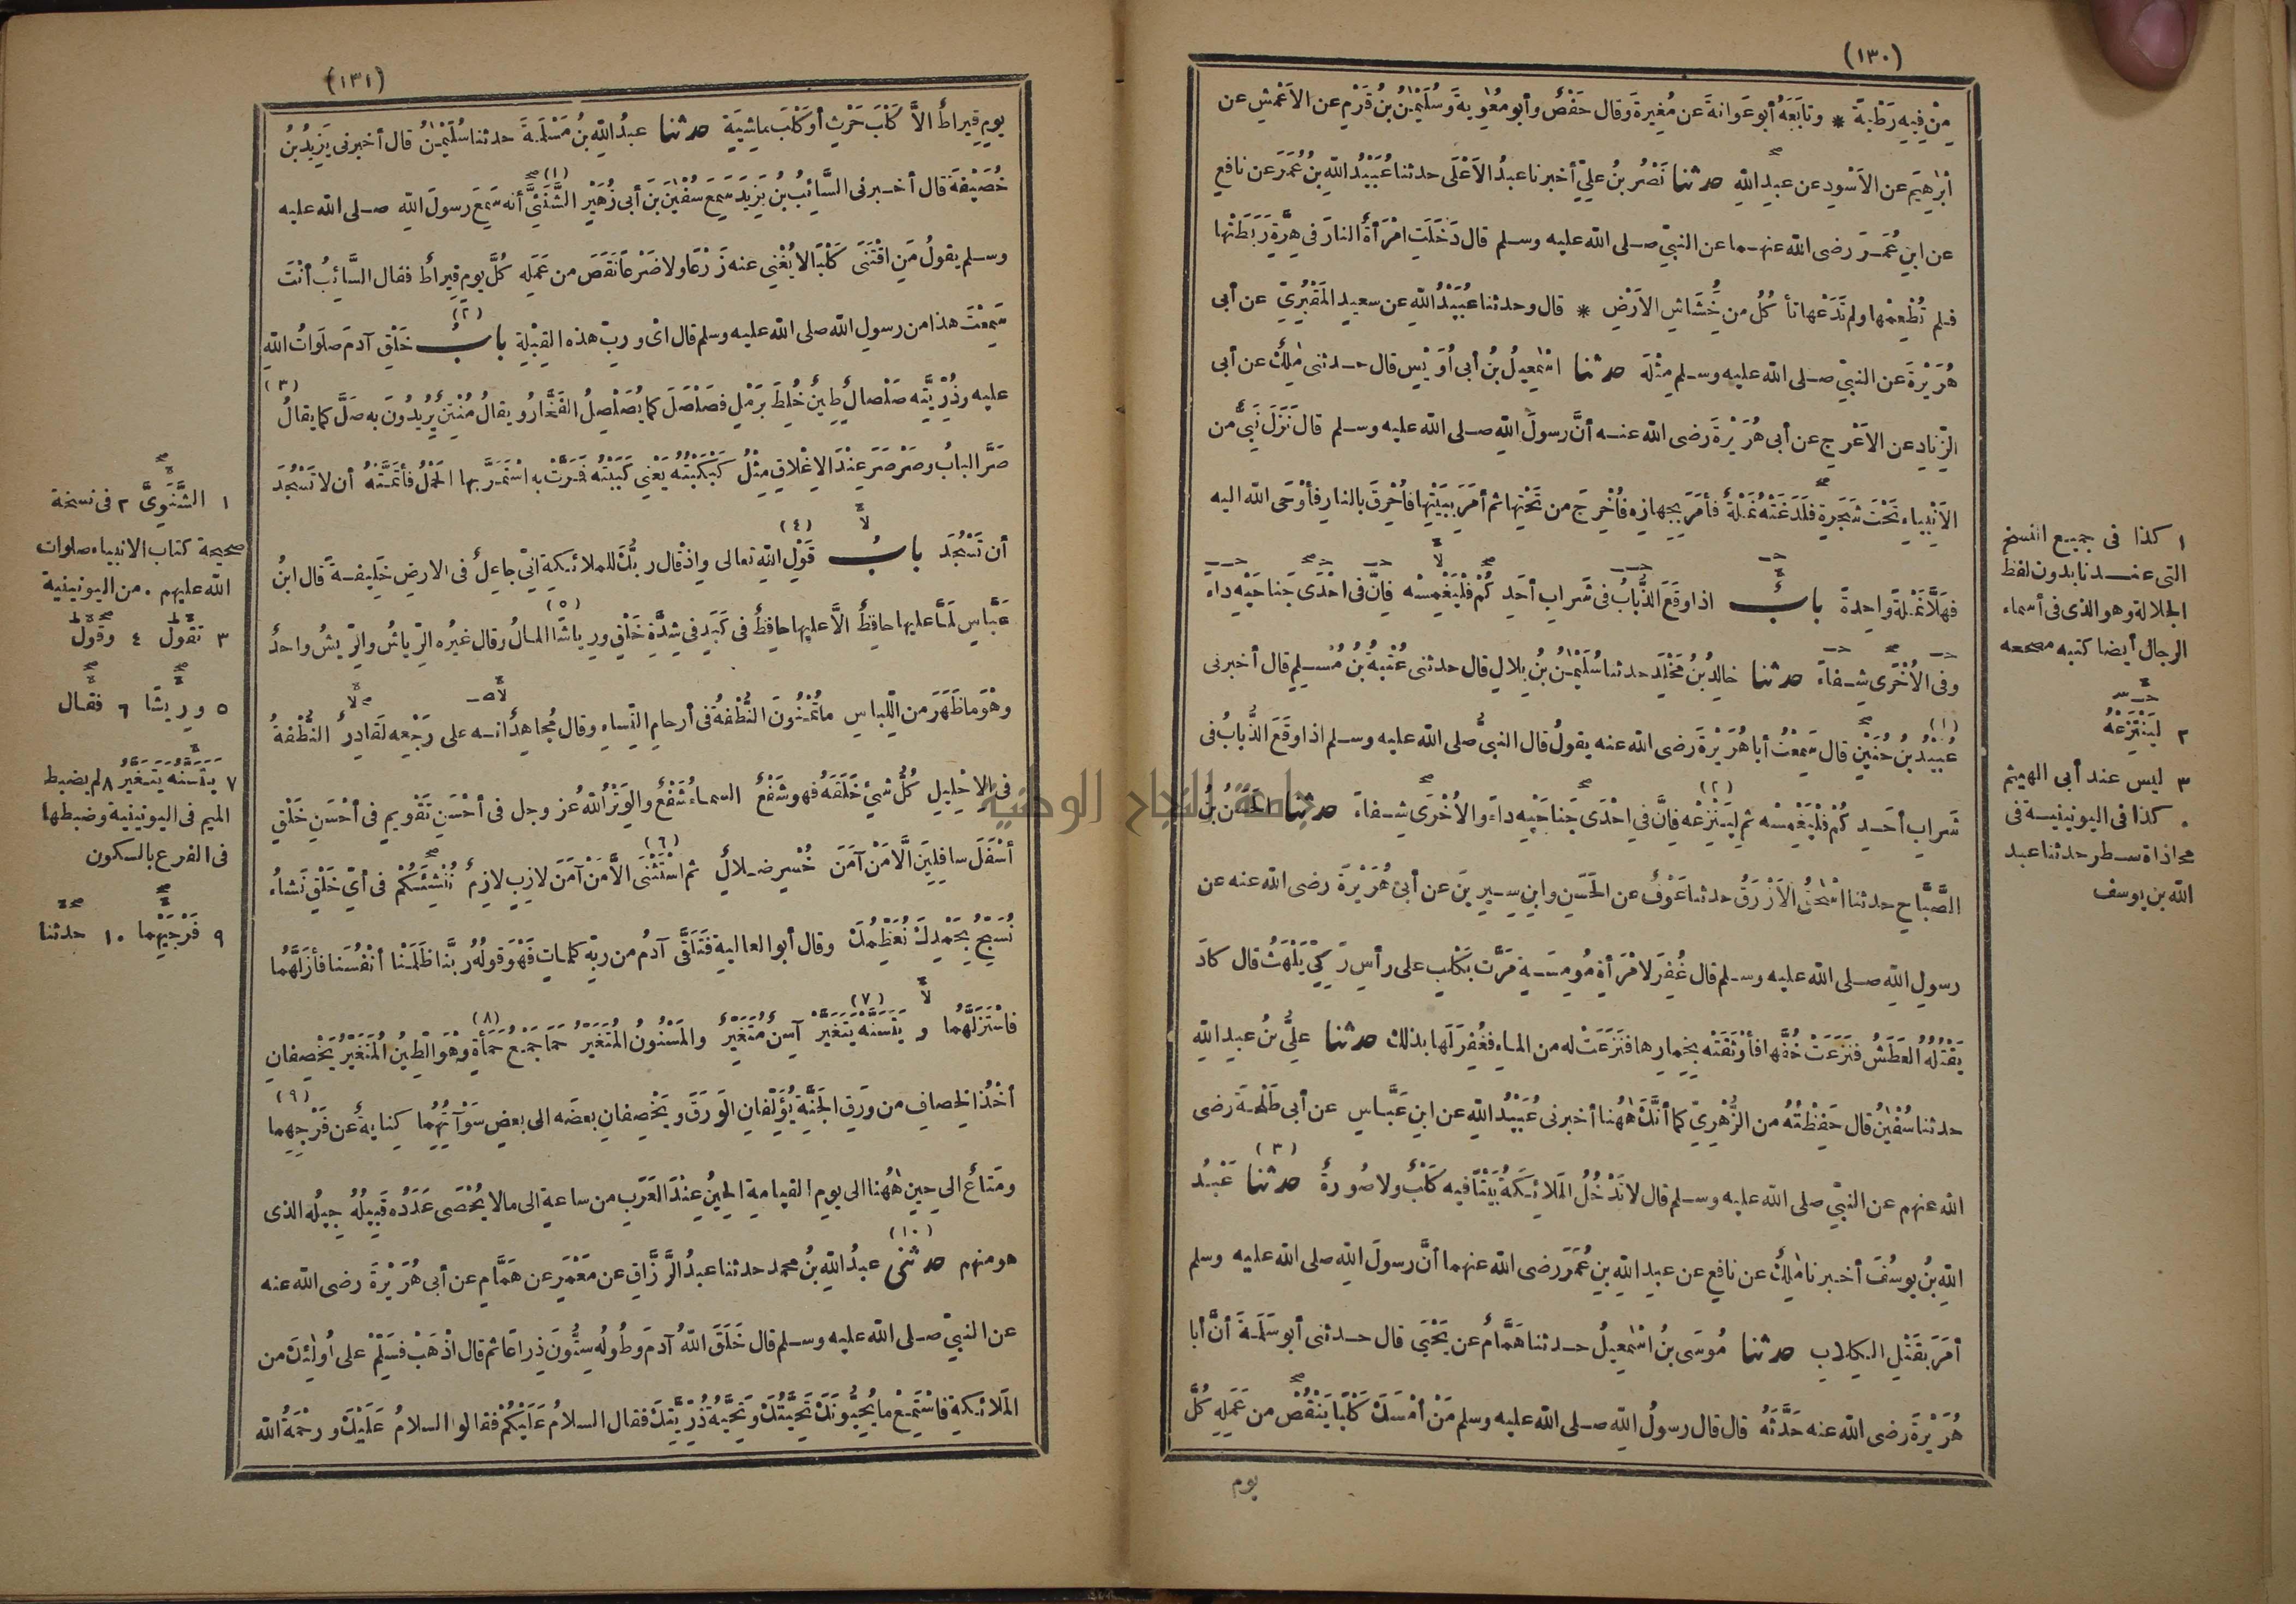 (١٣٠)
مِنْ فِيهِ رَطْبَةً * وتابَعَهُ أبو عَوانةَ عن مُغِيرةَ وقال حَفْصٌ وأبو مُعٰوِيةَ وَسُلَيْمٰنُ بنُ قَرْمٍ عن الاَعْمَشِ عن
اِبْرٰهِيمَ عن الاَسْوَدِ عن عبدِ اللهِ حدثنا نَصْرُ بنُ علِيٍّ أخبرنا عبدُ الاَعْلَى حدثنا عُبَيْدُ اللهِ بنُ عُمَرَ عن نافعٍ
عن ابنِ عُمَرَ رضى الله عنهما عن النبيِّ صلى الله عليه وسلم قال دَخَلَتِ امْرَأةٌ النارَ فى هِرَّةٍ رَبَطَتْها
فلم تُطْعِمْها ولم تَدَعْها تأكُلُ من خِشَاشِ الاَرْضِ * قال وحدثنا عُبَيْدُ اللهِ عن سعيدٍ المَقْبُرِيِّ عن أبى
هُرَيْرةَ عن النبيِّ صلى الله عليه وسلم مِثْلَهُ حدثنا اسْمٰعِيلُ بنُ أبى أُوَيْسٍ قال حدثنى مٰلِكٌ عن أبى
الزِّنادِ عن الاَعْرَجِ عن أبى هُرَيْرةَ رضى الله عنه أنَّ رسولَ اللهِ صلى الله عليه وسلم قال نَزَلَ نَبِيٌّ من
الاَنْبِياءِ تَحْتَ شَجَرةٍ فَلَدَغَتْهُ نَمْلةٌ فأمَرَ بِجَهازِهِ فأُخْرِجَ من تَحْتِها ثم أمَرَ بِبَيْتِها فأُحْرِقَ بالنارِ فأوْحَى الله اليه
فَهَلَّا نَمْلةً واحِدةً بابٌ اذا وقَعَ الذُّبابُ فى شَرابِ أحَدِكُمْ فَلْيَغْمِسْه فإنَّ فى اِحْدَى جَناحَيْهِ داءً
وفى الاُخْرَى شِفاءً حدثنا خالِدُ بنُ مَخْلَدٍ حدثنا سُلَيْمٰنُ بنُ بِلالٍ قال حدثنى عُتْبةُ بنُ مُسْلِمٍ قال أخبرنى
(١)
عُبَيْدُ بنُ حُنَيْنٍ قال سَمِعْتُ أبا هُرَيْرةَ رضى الله عنه يقولُ قال النبيُّ صلى الله عليه وسلم اذا وقَعَ الذُّبابُ فى
(٢)
شَرابِ أحَدِكُمْ فَلْيَغْمِسْه ثم لِيَنْزِعْه فإنَّ فى اِحْدَى جَناحَيْهِ داءً والاُخْرَى شِفاءً حدثنا الحَسَنُ بنُ
الصَّبَّاحِ حدثنا اسْحٰقُ الاَزْرَقُ حدثنا عَوْفٌ عن الحَسَنِ وابنِ سِيرِينَ عن أبى هُرَيْرةَ رضى الله عنه عن
رسولِ اللهِ صلى الله عليه وسلم قال غُفِرَ لامْرَأةٍ مُومِسَةٍ مَرَّتْ بكَلْبٍ على رأسِ رَكِيٍّ يَلْهَثُ قال كادَ
يَقْتُلُهُ العَطَشُ فَنَزَعَتْ خُفَّها فأوْثَقَتْه بِخِمارِها فَنَزَعَتْ له من الماءِ فغُفِرَ لَها بذلكَ حدثنا علِيُّ بنُ عبدِ اللهِ
حدثنا سُفْيٰنُ قال حَفِظْتُهُ من الزُّهْرِيِّ كما أنَّكَ هٰهُنا أخبرنى عُبَيْدُ اللهِ عن ابنِ عَبَّاسٍ عن أبى طَلْحةَ رضى
(٣)
الله عنهم عن النبيِّ صلى الله عليه وسلم قال لا تَدْخُلُ المَلائِكَةُ بَيْتًا فيه كَلْبٌ ولا صُورةٌ حدثنا عَبْدُ
اللهِ بنُ يوسُفَ أخبرنا مٰلِكٌ عن نافعٍ عن عبدِ اللهِ بنِ عُمَرَ رضى الله عنهما أنَّ رسولَ اللهِ صلى الله عليه وسلم
أمَرَ بقَتْلِ الكِلابِ حدثنا مُوسَى بنُ اسْمٰعِيلُ حدثنا هَمَّامٌ عن يَحْيَى قال حدثنى أبو سَلَمةَ أنَّ أبا
هُرَيْرةَ رضى الله عنه حَدَّثَهُ قال قال رسولُ اللهِ صلى الله عليه وسلم مَنْ أمْسَكَ كَلْبًا يَنْقُصْ من عَمَلِهِ كُلَّ
يوم
١ كذا فى جميع النسخ
التى عندنا بدون لفظ
الجلالة وهو الذى فى أسماء
الرجال أيضا كتبه مصححه
٢ لِيَنْتَزِعْهُ
٣ ليس عند أبى الهيثم
كذا فى اليونينية فى
محاذاة سطر حدثنا عبد
الله بن يوسف
(١٣١)
يومٍ قِيراطٌ اِلَّا كَلْبَ حَرْثٍ أوكَلْبَ ماشِيَةٍ حدثنا عبدُ اللهِ بنُ مَسْلَمةَ حدثنا سُلَيْمٰنُ قال أخبرنى يَزِيدُ بنُ
(١)
خُصَيْفةَ قال أخبرنى السَّائِبُ بنُ يَزِيدَ سَمِعَ سُفْيٰنَ بنَ أبى زُهَيْرٍ الشَّنَئِيَّ أنه سَمِعَ رسولَ اللهِ صلى الله عليه
وسلم يقولُ مَنِ اقْتَنَى كَلْبًا لا يُغْنِى عنه زَرْعًا ولا ضَرْعًا نَقَصَ من عَمَلِه كُلَّ يومٍ قِيراطٌ فقال السَّائِبُ أنْتَ
(٢)
سَمِعْتَ هذا من رسولِ الله صلى الله عليه وسلم قال اىْ وربِّ هذه القِبْلةِ بابُ خَلْقِ آدمَ صلَواتُ الله
(٣)
عليه وذُرِّيَّتِه صَلْصالٌ طِينٌ خُلِطَ برَمْلٍ فصَلْصَلَ كما يُصَلْصِلُ الفَخَّارُ ويقالُ مُنْتِنٌ يُرِيدُونَ به صَلَّ كما يقالُ
صَرَّ البابُ وصَرْصَرَ عِنْدَ الاِغْلاقِ مِثْلُ كَبْكَبْتُهُ يَعْنِى كَبَبْتُه فَمَرَّتْ به اسْتَمَرَّ بها الحَمْلُ فأتَمَّتْهُ أن لا تَسْجُدَ
(٤)
أن تَسْجُدَ بابُ قَوْلِ اللهِ تعالى واِذْ قال ربُّكَ للملائِكةِ اِنِّى جاعِلٌ فى الارضِ خَلِيفةً قال ابنُ
(٥)
عَبَّاسٍ لَمَّا عليها حافِظٌ اِلَّا عليها حافِظٌ فى كَبَدٍ فى شِدَّةِ خَلْقٍ ورِياشًا المالُ وقال غيرُه الرِّياشُ والرِّيشُ واحدٌ
وهْوَ ما ظَهَرَ من اللِّباسِ ما تُمْنُونَ النُّطْفةُ فى أرحامِ النِّساءِ وقال مُجاهِدٌ اِنه على رَجْعِه لَقَادِرٌ النُّطْفةُ
فى الاِحْلِيلِ كُلُّ شَىْءٍ خَلَقَهُ فهو شَفْعٌ السماءُ شَفْعٌ والوَتْرُ اللهُ عز وجل فى أحْسَنِ تَقْوِيمٍ فى أحْسَنِ خَلْقٍ
(٦)
أسْفَلَ سافِلِينَ اِلَّا مَنْ آمَنَ خُسْرٍ ضلالٌ ثم اسْتَثْنَى اِلَّا مَنْ آمَنَ لازِبٍ لازِمٌ نُنْشِئَكُمْ فى أىِّ خَلْقٍ نَشاءُ
نُسَبِّحُ بِحَمْدِكَ نُعَظِّمُكَ وقال أبو العاليةِ فَتَلَقَّى آدمُ من ربِّهِ كلماتٍ فَهْوَ قولُهُ ربَّنا ظَلَمْنا أنْفُسَنا فأزَلَّهُما
(٧) (٨)
فاسْتَزَلَّهُما و يَتَسَنَّهْ يَتَغَيَّرْ آسِنٌ مُتَغَيِّرٌ والمَسْنُونُ المُتَغَيِّرُ حَمَإٍ جَمْعُ حَمْأةٍ وهْوَ الطِّينُ المُتَغَيِّرُ يَخْصِفانِ
(٩)
أخْذُ الخِصافِ من ورَقِ الجَنَّةِ يُؤَلِّفانِ الوَرَقَ ويَخْصِفانِ بعضَه الى بعضٍ سَوْآتُهُما كنايةٌ عن فَرْجِهِما
ومَتاعٌ الى حِينٍ هٰهُنا الى يومِ القيامةِ الحِينُ عِنْدَ العَرَبِ من ساعةٍ الى مالا يُحْصَى عَدَدُه قَبِيلُهُ جِيلُه الذى
(١٠)
هو منهم حدثنى عبدُ اللهِ بنُ محمد حدثنا عبدُ الرَّزَّاقِ عن مَعْمَرٍ عن هَمَّامٍ عن أبى هُرَيْرةَ رضى الله عنه
عن النبيِّ صلى الله عليه وسلم قال خَلَقَ اللهُ آدمَ وطُولُهُ سِتُّونَ ذِراعًا ثم قال اذْهَبْ فسَلِّمْ على أُولٰئِكَ من
المَلائِكةِ فاسْتَمِعْ ما يُحَيُّونَكَ تَحِيَّتُكَ وتَحِيَّةُ ذُرِّيَّتِكَ فقال السلامُ عَلَيْكُمْ فقالوا السلامُ عَلَيْكَ ورحْمَةُ الله
١ الشَّنَوِىَّ ٢ فى نسخة
صحيحة كتاب الانبياء صلوات
الله عليهم . من اليونينية
٣ تقول ٤ وقول
٥ وريشًا ٦ فقال
٧ يَتَسَنَّه يَتَغَيَّرُ ٨ لم يضبط
الميم فى اليونينية وضبطها
فى الفرع بالسكون
٩ فَرْجَيْهِما ١٠ حدثنا
جامعة النجاح الوطنية